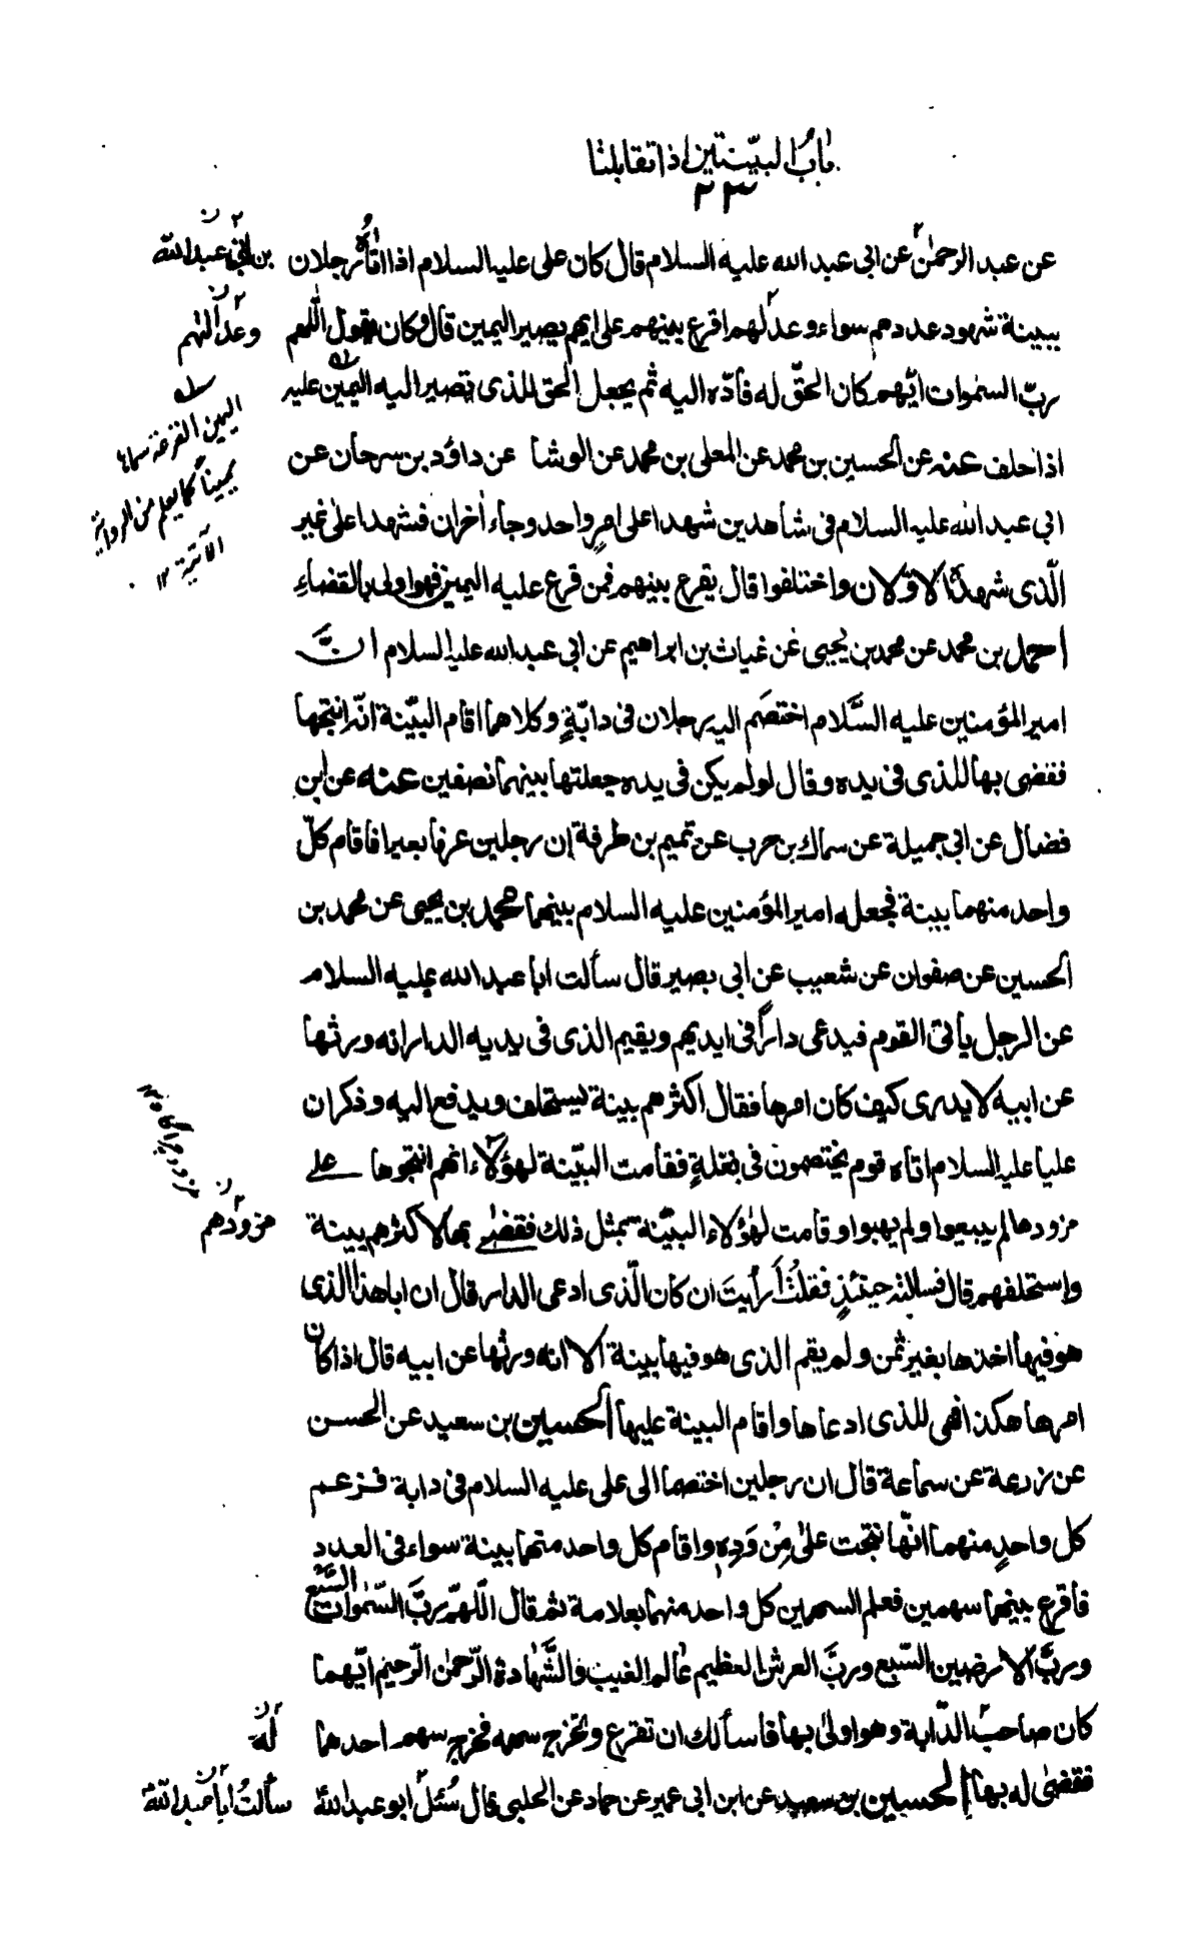 باب البيّنتين اذا تقابلتا
٢٣
عن عبد الرحمٰن عن ابى عبد الله عليه السلام قال كان على عليه السلام اذا اتاه رجلان
ببينة شهود عددهم سواء وعدلهم اقرع بينهم على ايهم يصير اليمين قال وكان يقول اللهم
ربّ السمٰوات ايّهم كان الحقّ له فادّه اليه ثم يجعل الحق للذى تصير اليه اليمين عليه
اذا حلف عنه عن الحسين بن محمد عن المعلى بن محمد عن الوشا عن داؤد بن سرحان عن
ابى عبد الله عليه السلام فى شاهدين شهدا على امرٍ واحد وجاء أخران فشهدا على غير
الّذى شهدا الاوّلان واختلفوا قال يقرع بينهم فمن قرع عليه اليمين فهو اولى بالقضاءِ
احمد بن محمد عن محمد بن يحيى عن غياث بن ابراهيم عن ابى عبد الله عليه السلام انَّ
امير المؤمنين عليه السَّلام اختصَم اليه رجلان فى دابّةٍ وكلاهما اقام البيّنة انّه انتجها
فقضى بها للذى فى يده وقال لو لم يكن فى يده جعلتها بينهما نصفين عنه عن ابن
فضال عن ابى جميلة عن سماك بن حرب عن تميم بن طرفة إن رجلين عرفا بعيرا فاقام كلّ
واحد منهما بينة فجعله امير المؤمنين عليه السلام بينهما محمد بن يحيى عن محمد بن
الحسين عن صفوان عن شعيب عن ابى بصير قال سألت ابا عبد الله عليه السلام
عن الرجل يأتى القوم فيدعى داراً فى ايديهم ويقيم الذى فى يديه الدار انه ورثها
عن ابيه لا يدرى كيف كان امرها فقال اكثرهم بينة يستحلف ويدفع اليه وذكر ان
عليا عليه السلام اتاه قوم يختصمون فى بغلةٍ فقامت البيّنة لهؤلاء انهم انتجوها على
مزودها لم يبيعوا ولم يهبوا وقامت لهؤلاء البيّنة بمثل ذلك فقضى بها لاكثرهم بينة
واستحلفهم قال فسالته حينئذٍ فقلتُ أرأيتَ ان كان الّذى ادعى الدار قال ان ابا هذا الذى
هو فيها اخذها بغير ثمن ولم يقم الذى هو فيها بينة الا انه ورثها عن ابيه قال اذا كان
امرها هكذا فهى للذى ادعاها واقام البينة عليها الحسين بن سعيد عن الحسن
عن زرعة عن سماعة قال ان رجلين اختصما الى على عليه السلام فى دابة فزعم
كل واحدٍ منهما انّها نتجت على مِذوَدِهِ واقام كل واحد منهما بينة سواء فى العدد
فاقرع بينهما سهمين فعلم السهمين كل واحد منهما بعلامة ثم قال اللّهمّ ربَّ السّمٰوات السَّبع
وربَّ الارضين السّبع وربَّ العرش العظيم عالم الغيب والشَّهادة الرّحمٰن الرّحيم ايّهما
كان صاحب الدّابة وهو اولىٰ بها فاسألك ان تقرع وتخرج سهمه فخرج سهم احدهما
فقضىٰ له بها الحسين بن سعيد عن ابن ابى عمير عن حماد عن الحلبى قال سُئل ابو عبد الله
بن ابى عبد الله
وعدالتهم
اليمين القرعة سماها
يمينا كما يعلم من الرواية
الآتية ١٢
مزودهم
له
سألتُ ابا عبد الله